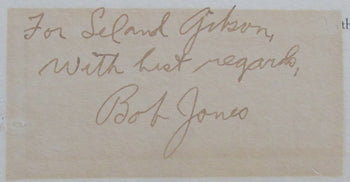 For Leland Gibson,
With best regards,
Bob Jones